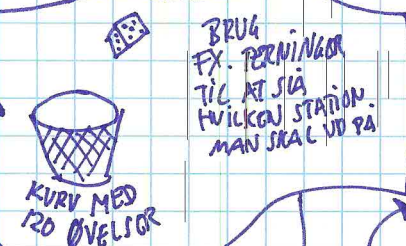 BRUG
FX. TERNINGER
TIL AT SLÅ
HVILKEN STATION
MAN SKAL UD PÅ
KURV MED
120 ØVELSER